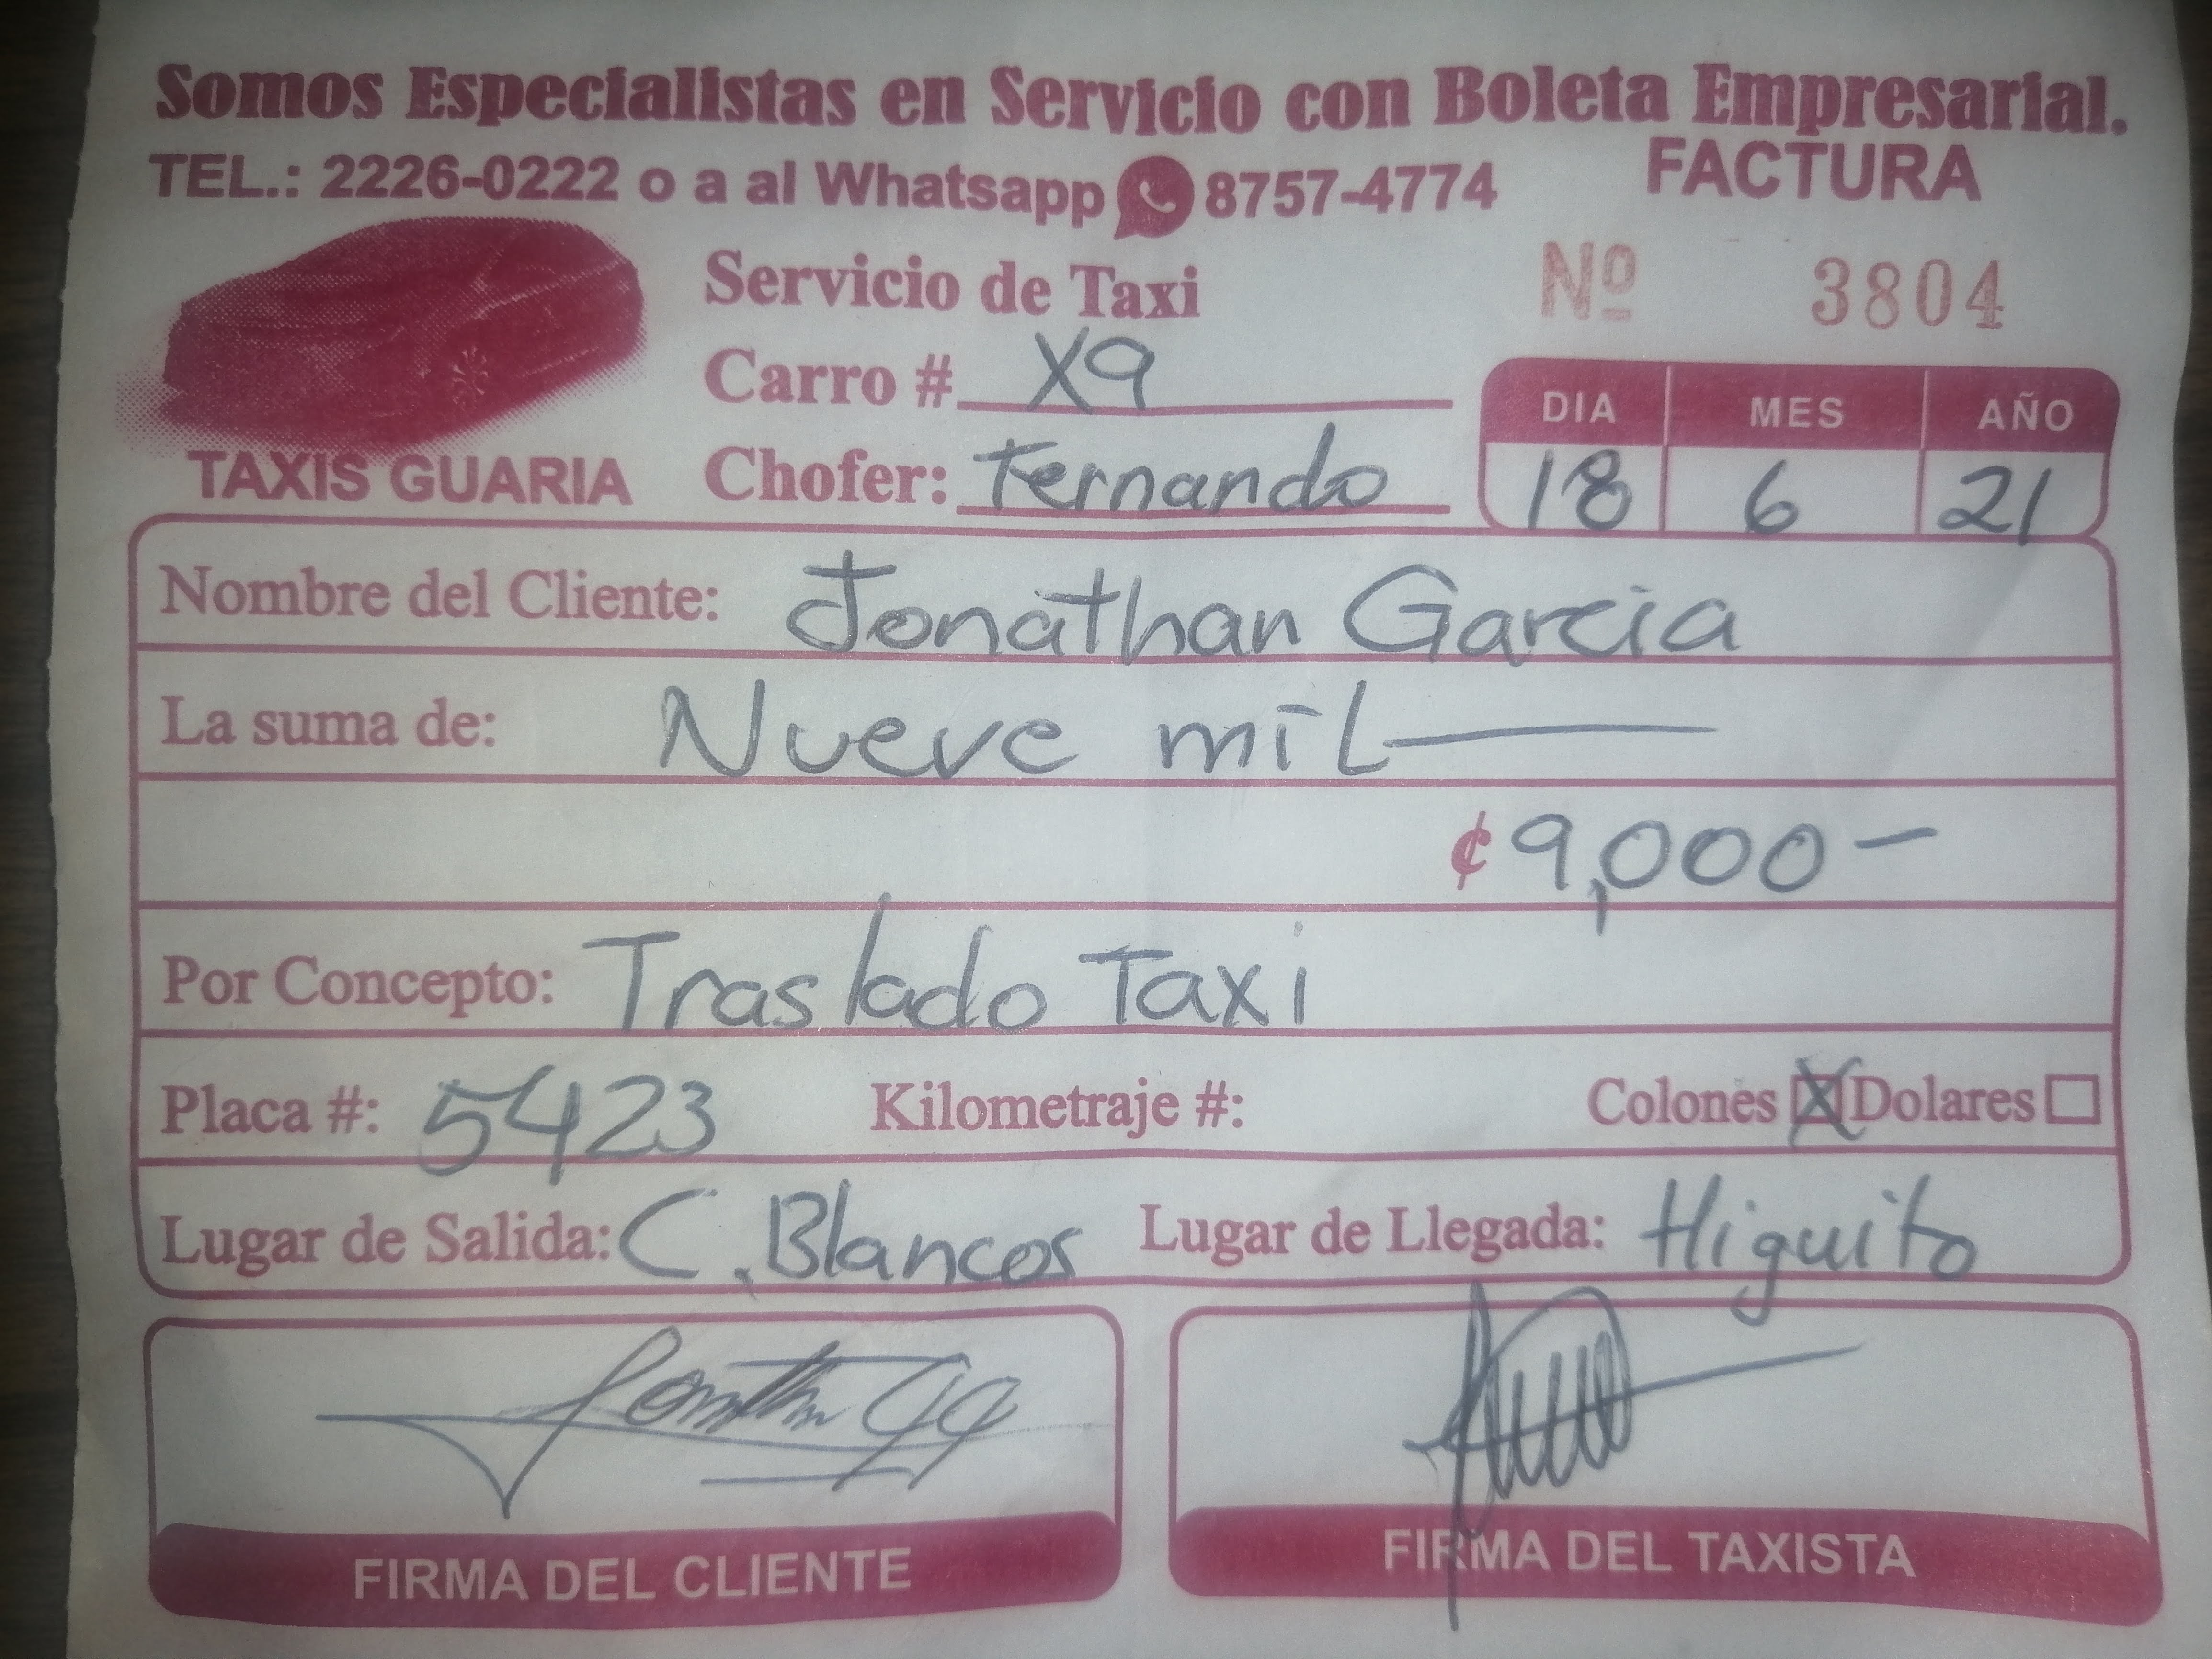 Somos Especialistas en Servicio con Boleta Empresarial.
TEL.: 2226-0222 o a al Whatsapp 8757-4774
FACTURA
Servicio de Taxi
Nº 3804
Carro # X9
TAXIS GUARIA
Chofer: Fernando
DIA MES AÑO
18 6 21
Nombre del Cliente: Jonathan Garcia
La suma de: Nueve mil
¢ 9,000-
Por Concepto: Traslado Taxi
Placa #: 5423 Kilometraje #: Colones X Dolares
Lugar de Salida: C. Blancos Lugar de Llegada: Higuito
FIRMA DEL CLIENTE
FIRMA DEL TAXISTA